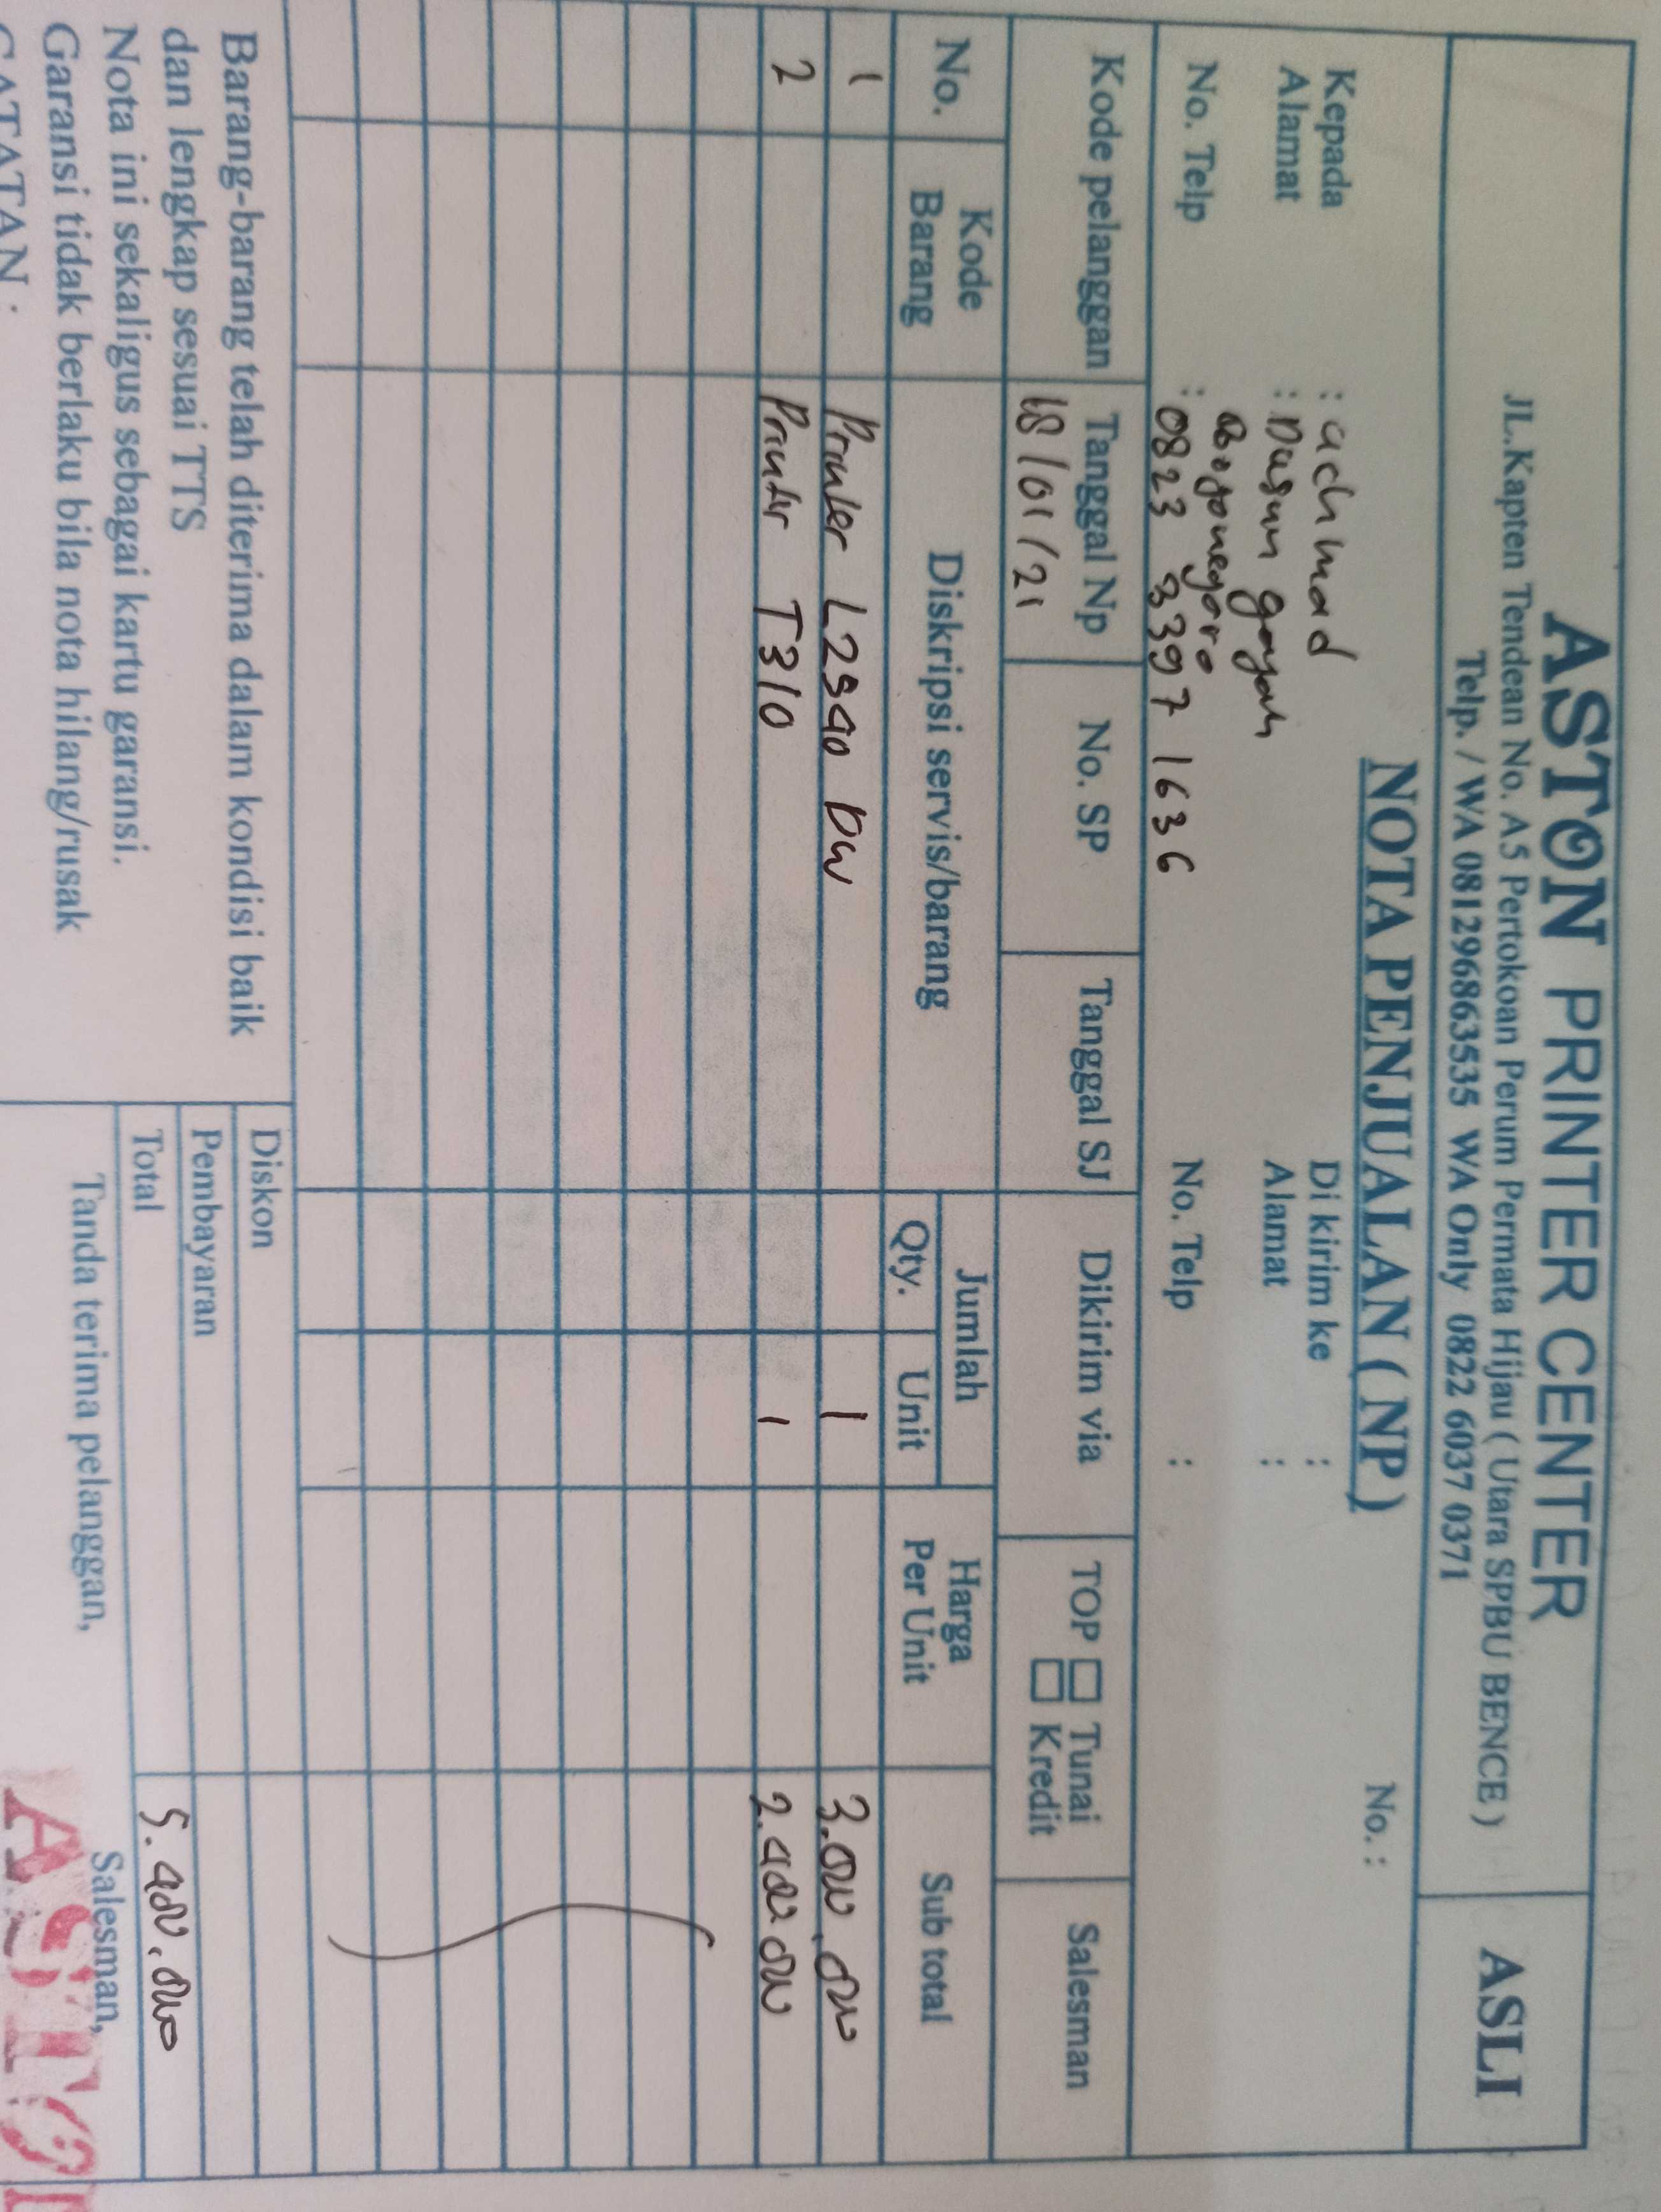 ASTON PRINTER CENTER
JL.Kapten Tendean No. A5 Pertokoan Perum Permata Hijau ( Utara SPBU BENCE )
Telp. / WA 081296863535 WA Only 0822 6037 0371
ASLI
NOTA PENJUALAN ( NP )
No. :
Kepada : achmad
Alamat : Dusun gayam
Bojonegoro
No. Telp : 0823 3397 1636
Di kirim ke :
Alamat :
No. Telp :
Kode pelanggan Tanggal Np No. SP Tanggal SJ Dikirim via TOP Tunai Kredit Salesman
18/01/21
No. Kode Barang Diskripsi servis/barang Jumlah Qty. Unit Harga Per Unit Sub total
1 Printer L2540 DW 1 3.000.000
2 Printer T310 1 2.400.000
Barang-barang telah diterima dalam kondisi baik
dan lengkap sesuai TTS
Nota ini sekaligus sebagai kartu garansi.
Garansi tidak berlaku bila nota hilang/rusak
CATATAN :
Diskon
Pembayaran
Total 5.400.000
Tanda terima pelanggan,
Salesman,
ASTON